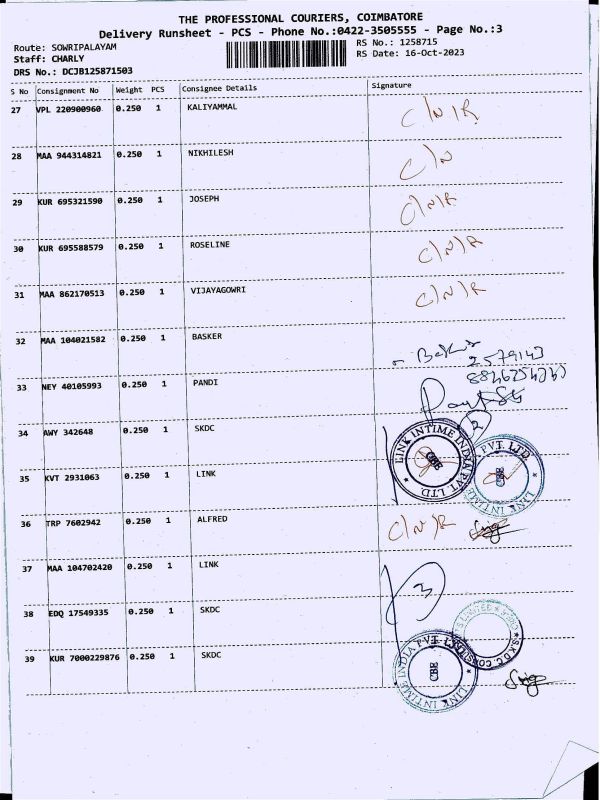 THE PROFESSIONAL COURIERS, COIMBATORE
Delivery Runsheet - PCS - Phone No.:0422-3505555 - Page No.:3
Route: SOWRIPALAYAM
RS No.: 1258715
Staff: CHARLY
RS Date: 16-Oct-2023
DRS No.: DCJB125871503
S No Consignment No Weight PCS Consignee Details Signature
27 VPL 220900960 0.250 1 KALIYAMMAL C/N/R
28 MAA 944314821 0.250 1 NIKHILESH C/N
29 KUR 695321590 0.250 1 JOSEPH C/N/R
30 KUR 695588579 0.250 1 ROSELINE C/N/R
31 MAA 862170513 0.250 1 VIJAYAGOWRI C/N/R
32 MAA 104021582 0.250 1 BASKER
33 NEY 40105993 0.250 1 PANDI
34 AWY 342648 0.250 1 SKDC 2
LINK INTIME INDIA PVT LTD
CBE
35 KVT 2931063 0.250 1 LINK
36 TRP 7602942 0.250 1 ALFRED C/N/R
37 MAA 104702420 0.250 1 LINK 3
38 EDQ 17549335 0.250 1 SKDC
39 KUR 7000229876 0.250 1 SKDC
CBE